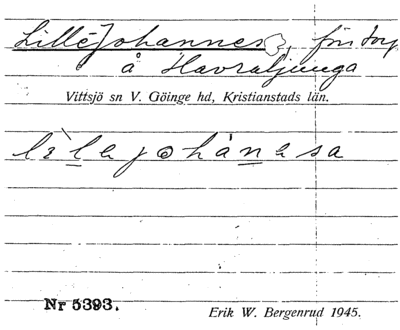 LilleJohannes, förs torp
å Havraljunga
Vittsjö sn V. Göinge hd, Kristianstads län.
lìlejohánesa
Nr 5393.
Erik W. Bergenrud 1945.